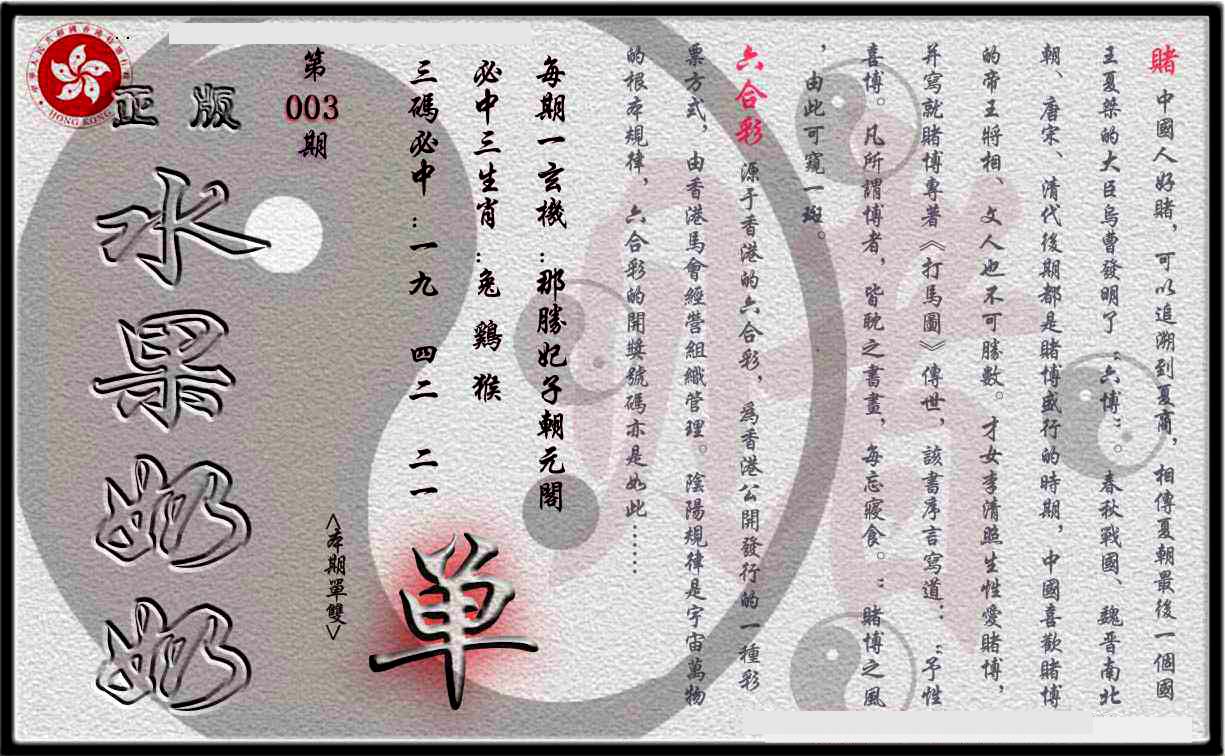 賭 中國人好賭，可以追溯到夏商，相傳夏朝最後一個國
王夏桀的大臣烏曹發明了“六博”。春秋戰國、魏晋南北
朝、唐宋、清代後期都是賭博盛行的時期，中國喜歡賭博
的帝王將相、文人也不可勝數。才女李清照生性愛賭博，
并寫就賭博專著《打馬圖》傳世，該書序言寫道：“予性
喜博。凡所謂博者，皆耽之書畫，每忘寢食。”賭博之風
，由此可窺一斑。
六合彩 源于香港的六合彩，為香港公開發行的一種彩
票方式，由香港馬會經營組織管理。陰陽規律是宇宙萬物
的根本規律，六合彩的開獎號碼亦是如此……
每期一玄機：那勝妃子朝元閣
必中三生肖：兔 鷄 猴
三碼必中：一九 四二 二一
第003期
<本期單雙>
单
正版
水果奶奶
HONG KONG